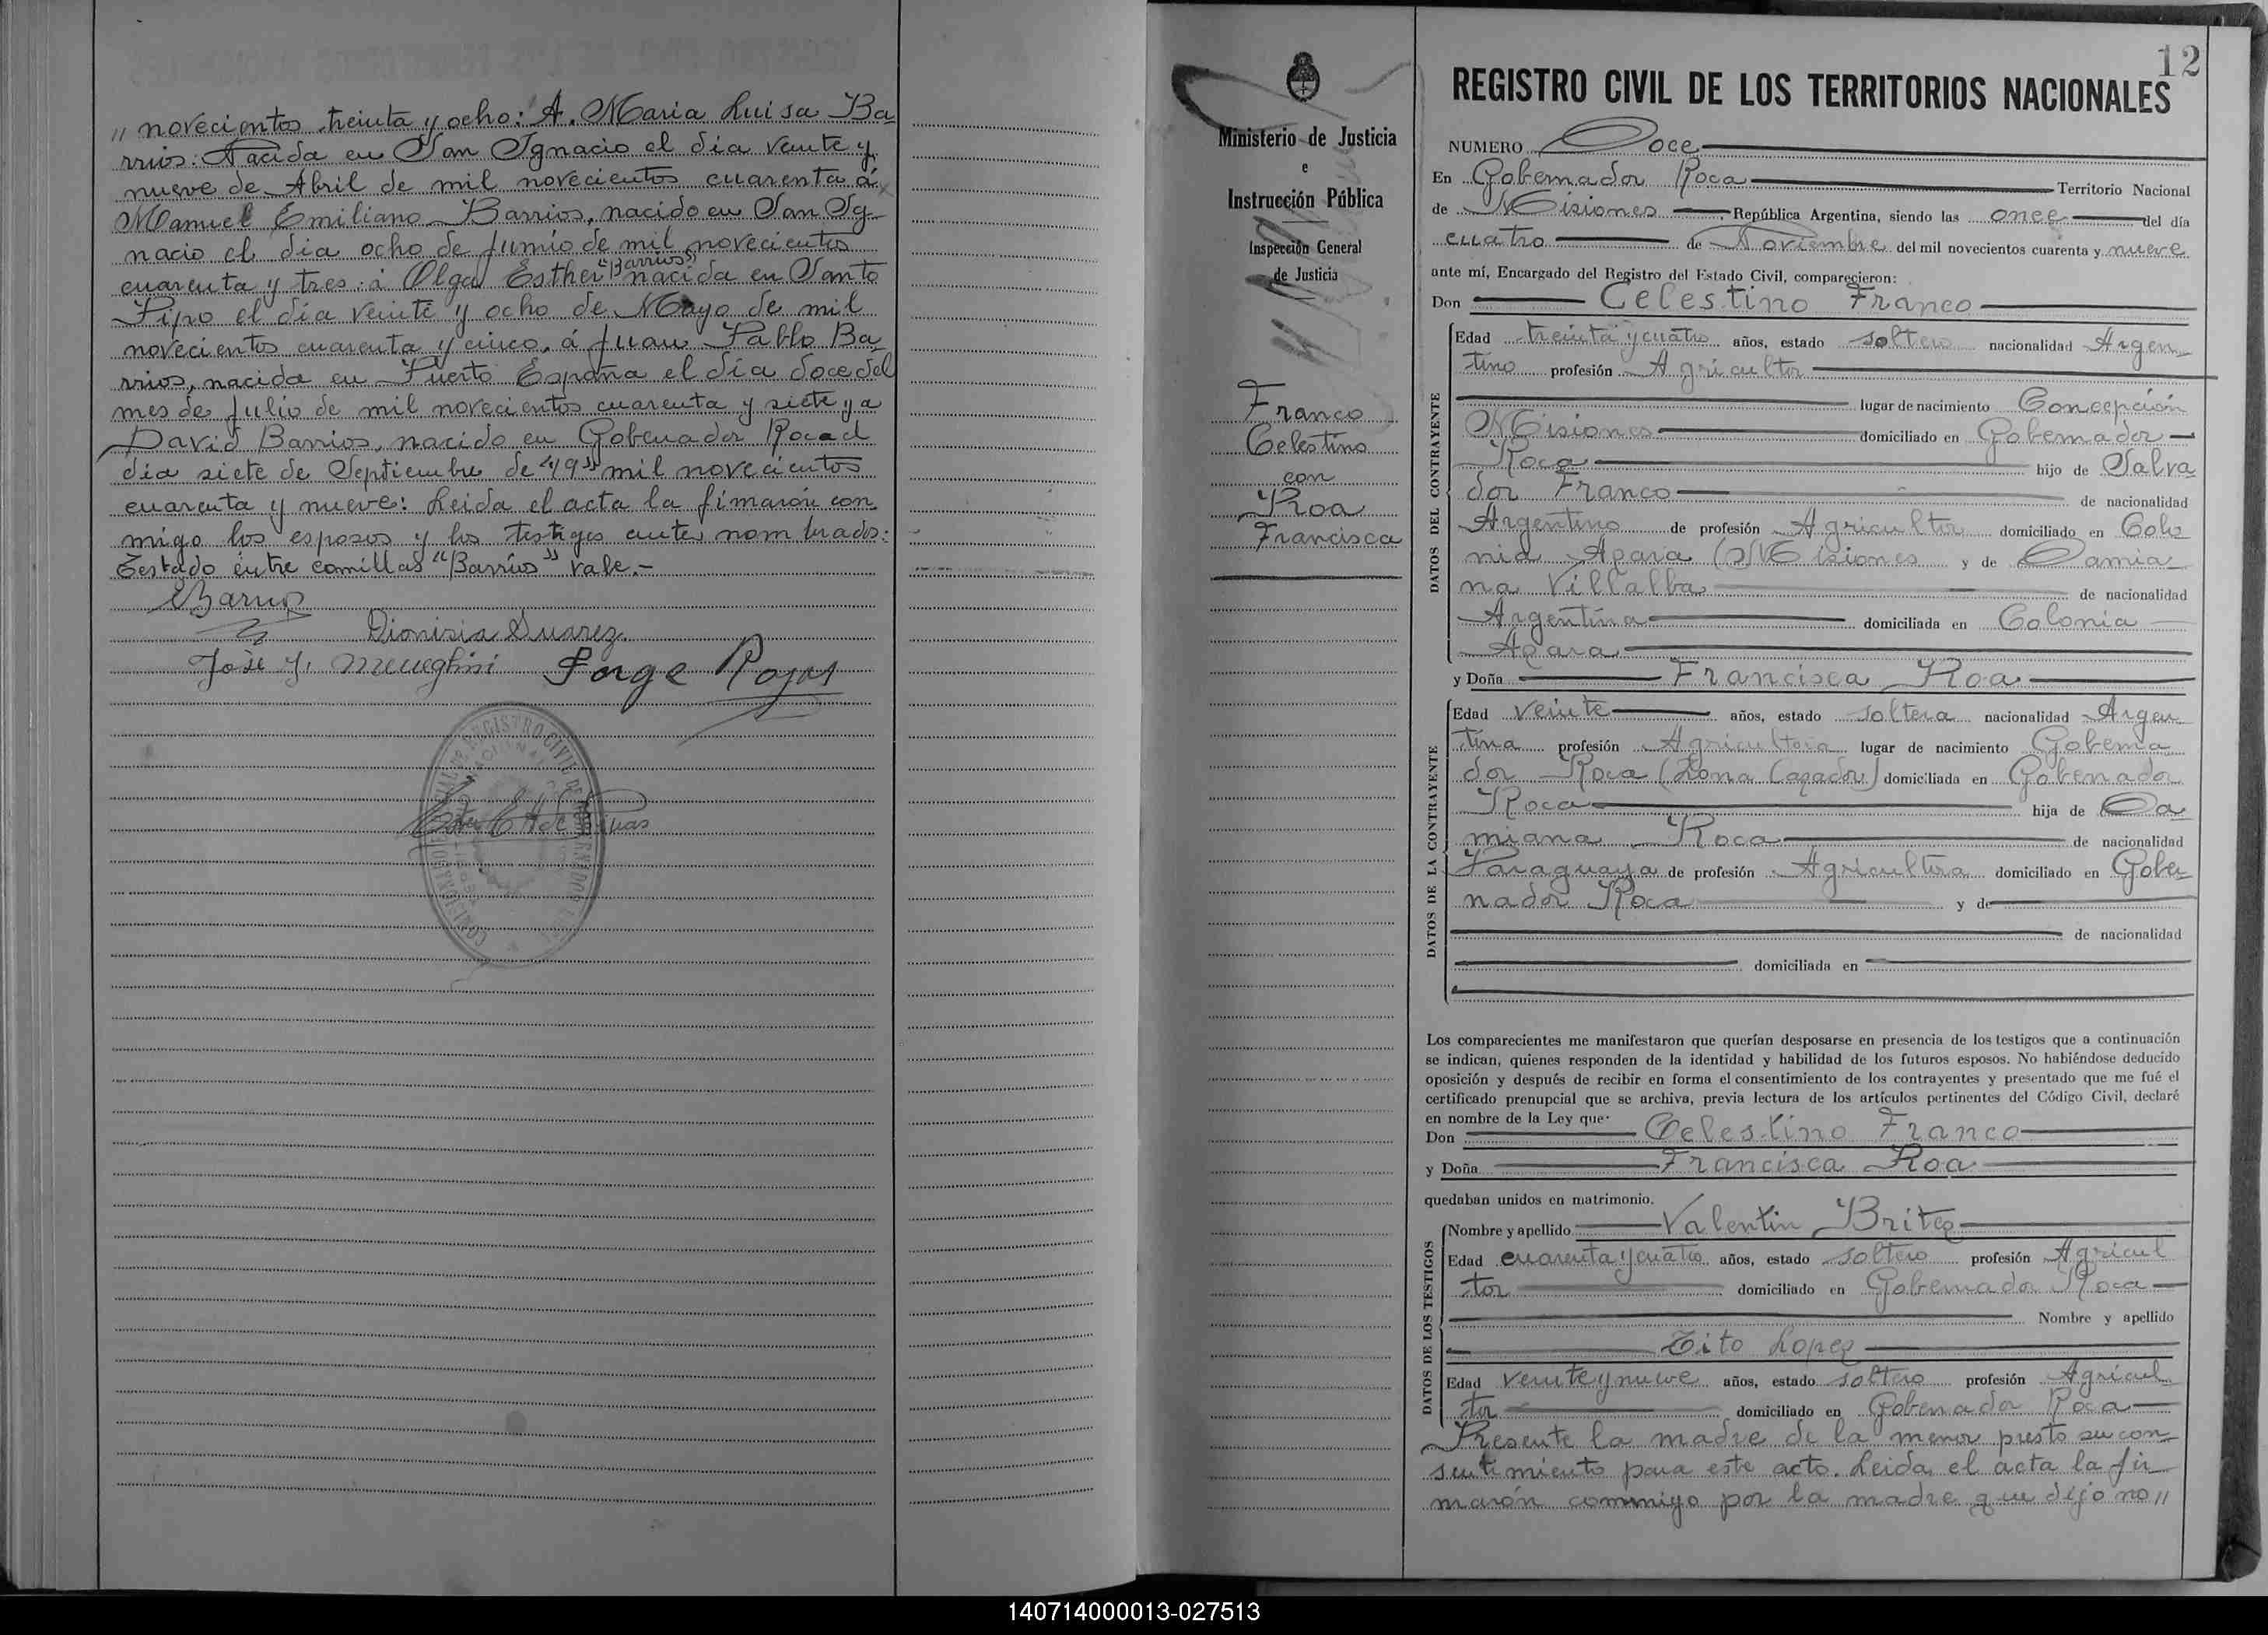 " novecientos treinta y ocho: A. Maria Luisa Ba
rrios: Nacida en San Ignacio el dia veinte y
nueve de Abril de mil novecientos cuarenta á
Manuel Emiliano Barrios, nacido en San Ig
nacio el dia ocho de Junio de mil novecientos
cuarenta y tres: á Olga Esther "Barrios" nacida en Santo
Pipo el dia veinte y ocho de Mayo de mil
novecientos cuarenta y cinco, á Juan Pablo Ba
rrios, nacida en Puerto España el dia doce del
mes de Julio de mil novecientos cuarenta y siete y a
David Barrios, nacido en Gobenador Roca el
dia siete de Septiembre de "49" mil novecientos
cuarenta y nueve: Leida el acta la fimarón con
migo los esposos y los testigos antes nombrados:
Testado entre comillas "Barrios" vale.-
Barrios
Dionisia Suarez
José J. Meneghini Jorge Rojas
REGISTRO CIVIL
12
Ministerio de Justicia
e
Instrucción Pública
Inspección General
de Justicia
Franco
Celestino
con
Roa
Francisca
REGISTRO CIVIL DE LOS TERRITORIOS NACIONALES
NUMERO Doce
En Gobernador Roca Territorio Nacional
de Misiones, República Argentina, siendo las once del día
cuatro de Noviembre del mil novecientos cuarenta y nueve
ante mí, Encargado del Registro del Estado Civil, comparecieron:
Don Celestino Franco
DATOS DEL CONTRAYENTE
Edad treinta y cuatro años, estado soltero nacionalidad Argen
tino profesión Agricultor
lugar de nacimiento Concepción
Misiones domiciliado en Gobernador
Roca hijo de Salva
dor Franco de nacionalidad
Argentino de profesión Agricultor domiciliado en Colo
nia Apara (Misiones y de Damia
na Villalba de nacionalidad
Argentina domiciliada en Colonia
Apara
y Doña Francisca Roa
DATOS DE LA CONTRAYENTE
Edad Veinte años, estado soltera nacionalidad Argen
tina profesión Agricultora lugar de nacimiento Goberna
dor Roca (Loma Cazador) domiciliada en Gobernador
Roca hija de Da
miana Roca de nacionalidad
Paraguaya de profesión Agricultora domiciliado en Gober
nador Roca y de
de nacionalidad
domiciliada en
Los comparecientes me manifestaron que querían desposarse en presencia de los testigos que a continuación
se indican, quienes responden de la identidad y habilidad de los futuros esposos. No habiéndose deducido
oposición y después de recibir en forma el consentimiento de los contrayentes y presentado que me fué el
certificado prenupcial que se archiva, previa lectura de los artículos pertinentes del Código Civil, declaré
en nombre de la Ley que:
Don Celestino Franco
y Doña Francisca Roa
quedaban unidos en matrimonio.
DATOS DE LOS TESTIGOS
Nombre y apellido Valentin Britez
Edad cuarenta y cuatro años, estado soltero profesión Agricul
tor domiciliado en Gobernador Roca
Nombre y apellido
Tito Lopez
Edad veinte y nueve años, estado soltero profesión Agricul
tor domiciliado en Gobernador Roca
Presente la madre de la menor presto su con
sentimiento para este acto. Leida el acta la fir
marón commigo por la madre que dijo no "
140714000013-027513